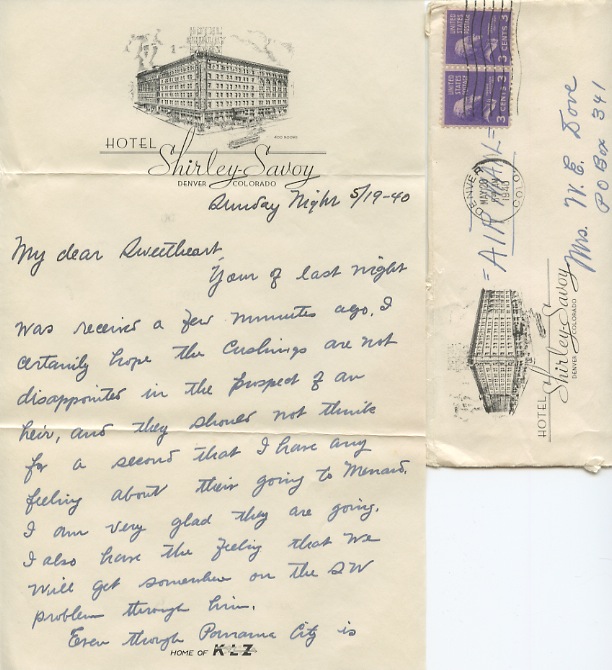 400 ROOMS
HOTEL
Shirley-Savoy
DENVER COLORADO
Sunday Night 5/19-40
My dear Sweetheart
Your of last night
was received a few minutes ago. I
certainly hope the Cushings are not
disappointed in the prospect of an
heir, and they should not think
for a second that I have any
feeling about their going to Menard.
I am very glad they are going.
I also have the feeling that we
will get somewhere on the SW
problem through him.
Even though Panama City is
HOME OF KLZ
UNITED STATES POSTAGE 3 CENTS 3
UNITED STATES POSTAGE 3 CENTS 3
DENVER COLO.
MAY 20
1940
=AIR MAIL=
Mrs. W. E. Dove
PO Box 341
HOTEL
Shirley-Savoy
DENVER COLORADO